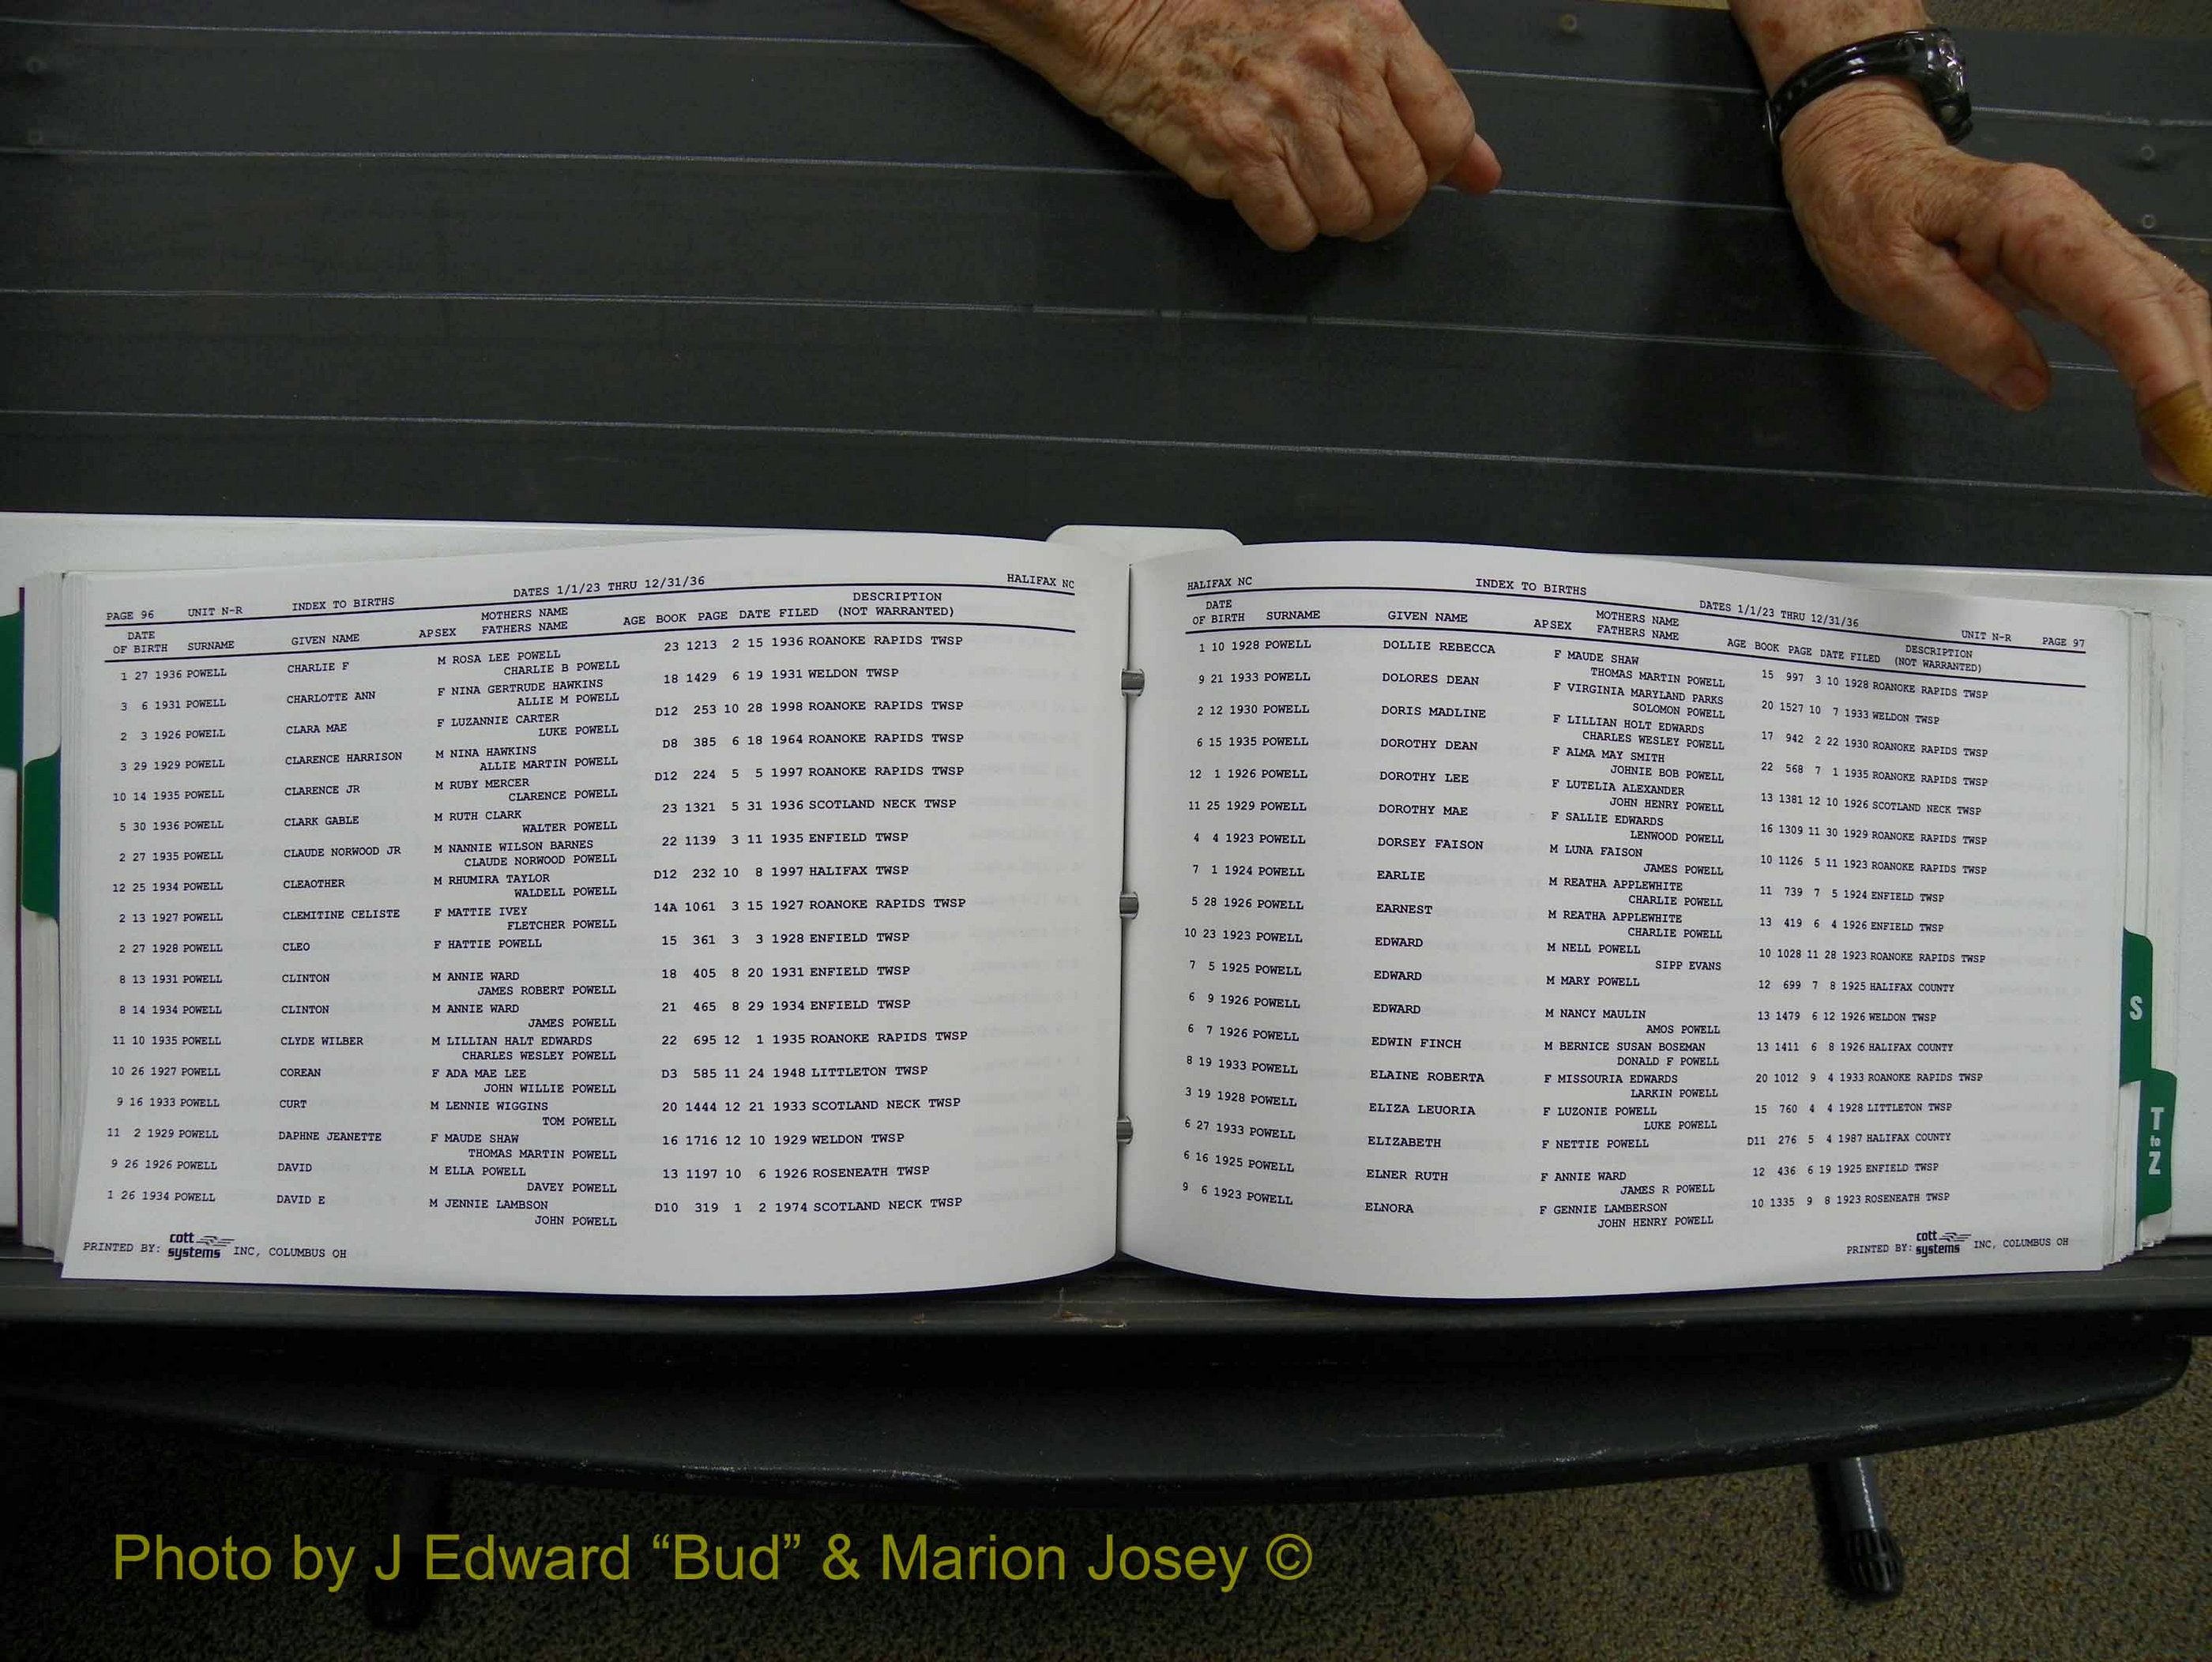 PAGE 96 UNIT N-R INDEX TO BIRTHS DATES 1/1/23 THRU 12/31/36 HALIFAX NC
DATE MOTHERS NAME DESCRIPTION
OF BIRTH SURNAME GIVEN NAME APSEX FATHERS NAME AGE BOOK PAGE DATE FILED (NOT WARRANTED)
1 27 1936 POWELL CHARLIE F M ROSA LEE POWELL 23 1213 2 15 1936 ROANOKE RAPIDS TWSP
CHARLIE B POWELL
3 6 1931 POWELL CHARLOTTE ANN F NINA GERTRUDE HAWKINS 18 1429 6 19 1931 WELDON TWSP
ALLIE M POWELL
2 3 1926 POWELL CLARA MAE F LUZANNIE CARTER D12 253 10 28 1998 ROANOKE RAPIDS TWSP
LUKE POWELL
3 29 1929 POWELL CLARENCE HARRISON M NINA HAWKINS D8 385 6 18 1964 ROANOKE RAPIDS TWSP
ALLIE MARTIN POWELL
10 14 1935 POWELL CLARENCE JR M RUBY MERCER D12 224 5 5 1997 ROANOKE RAPIDS TWSP
CLARENCE POWELL
5 30 1936 POWELL CLARK GABLE M RUTH CLARK 23 1321 5 31 1936 SCOTLAND NECK TWSP
WALTER POWELL
2 27 1935 POWELL CLAUDE NORWOOD JR M NANNIE WILSON BARNES 22 1139 3 11 1935 ENFIELD TWSP
CLAUDE NORWOOD POWELL
12 25 1934 POWELL CLEAOTHER M RHUMIRA TAYLOR D12 232 10 8 1997 HALIFAX TWSP
WALDELL POWELL
2 13 1927 POWELL CLEMITINE CELISTE F MATTIE IVEY 14A 1061 3 15 1927 ROANOKE RAPIDS TWSP
FLETCHER POWELL
2 27 1928 POWELL CLEO F HATTIE POWELL 15 361 3 3 1928 ENFIELD TWSP
8 13 1931 POWELL CLINTON M ANNIE WARD 18 405 8 20 1931 ENFIELD TWSP
JAMES ROBERT POWELL
8 14 1934 POWELL CLINTON M ANNIE WARD 21 465 8 29 1934 ENFIELD TWSP
JAMES POWELL
11 10 1935 POWELL CLYDE WILBER M LILLIAN HALT EDWARDS 22 695 12 1 1935 ROANOKE RAPIDS TWSP
CHARLES WESLEY POWELL
10 26 1927 POWELL COREAN F ADA MAE LEE D3 585 11 24 1948 LITTLETON TWSP
JOHN WILLIE POWELL
9 16 1933 POWELL CURT M LENNIE WIGGINS 20 1444 12 21 1933 SCOTLAND NECK TWSP
TOM POWELL
11 2 1929 POWELL DAPHNE JEANETTE F MAUDE SHAW 16 1716 12 10 1929 WELDON TWSP
THOMAS MARTIN POWELL
9 26 1926 POWELL DAVID M ELLA POWELL 13 1197 10 6 1926 ROSENEATH TWSP
DAVEY POWELL
1 26 1934 POWELL DAVID E M JENNIE LAMBSON D10 319 1 2 1974 SCOTLAND NECK TWSP
JOHN POWELL
PRINTED BY: cott systems INC, COLUMBUS OH
HALIFAX NC INDEX TO BIRTHS DATES 1/1/23 THRU 12/31/36 UNIT N-R PAGE 97
DATE MOTHERS NAME DESCRIPTION
OF BIRTH SURNAME GIVEN NAME APSEX FATHERS NAME AGE BOOK PAGE DATE FILED (NOT WARRANTED)
1 10 1928 POWELL DOLLIE REBECCA F MAUDE SHAW 15 997 3 10 1928 ROANOKE RAPIDS TWSP
THOMAS MARTIN POWELL
9 21 1933 POWELL DOLORES DEAN F VIRGINIA MARYLAND PARKS 20 1527 10 7 1933 WELDON TWSP
SOLOMON POWELL
2 12 1930 POWELL DORIS MADLINE F LILLIAN HOLT EDWARDS 17 942 2 22 1930 ROANOKE RAPIDS TWSP
CHARLES WESLEY POWELL
6 15 1935 POWELL DOROTHY DEAN F ALMA MAY SMITH 22 568 7 1 1935 ROANOKE RAPIDS TWSP
JOHNIE BOB POWELL
12 1 1926 POWELL DOROTHY LEE F LUTELIA ALEXANDER 13 1381 12 10 1926 SCOTLAND NECK TWSP
JOHN HENRY POWELL
11 25 1929 POWELL DOROTHY MAE F SALLIE EDWARDS 16 1309 11 30 1929 ROANOKE RAPIDS TWSP
LENWOOD POWELL
4 4 1923 POWELL DORSEY FAISON M LUNA FAISON 10 1126 5 11 1923 ROANOKE RAPIDS TWSP
JAMES POWELL
7 1 1924 POWELL EARLIE M REATHA APPLEWHITE 11 739 7 5 1924 ENFIELD TWSP
CHARLIE POWELL
5 28 1926 POWELL EARNEST M REATHA APPLEWHITE 13 419 6 4 1926 ENFIELD TWSP
CHARLIE POWELL
10 23 1923 POWELL EDWARD M NELL POWELL 10 1028 11 28 1923 ROANOKE RAPIDS TWSP
SIPP EVANS
7 5 1925 POWELL EDWARD M MARY POWELL 12 699 7 8 1925 HALIFAX COUNTY
6 9 1926 POWELL EDWARD M NANCY MAULIN 13 1479 6 12 1926 WELDON TWSP
AMOS POWELL
6 7 1926 POWELL EDWIN FINCH M BERNICE SUSAN BOSEMAN 13 1411 6 8 1926 HALIFAX COUNTY
DONALD F POWELL
8 19 1933 POWELL ELAINE ROBERTA F MISSOURIA EDWARDS 20 1012 9 4 1933 ROANOKE RAPIDS TWSP
LARKIN POWELL
3 19 1928 POWELL ELIZA LEUORIA F LUZONIE POWELL 15 760 4 4 1928 LITTLETON TWSP
LUKE POWELL
6 27 1933 POWELL ELIZABETH F NETTIE POWELL D11 276 5 4 1987 HALIFAX COUNTY
6 16 1925 POWELL ELNER RUTH F ANNIE WARD 12 436 6 19 1925 ENFIELD TWSP
JAMES R POWELL
9 6 1923 POWELL ELNORA F GENNIE LAMBERSON 10 1335 9 8 1923 ROSENEATH TWSP
JOHN HENRY POWELL
PRINTED BY: cott systems INC, COLUMBUS OH
S
T to Z
Photo by J Edward “Bud” & Marion Josey ©